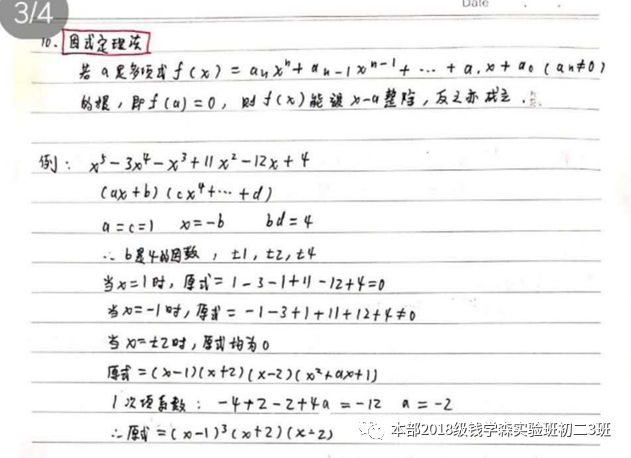 3/4
Date
10. 因式定理法
若a是多项式 f(x) = aₙxⁿ + aₙ₋₁xⁿ⁻¹ + … + a₁x + a₀ (aₙ≠0)
的根，即 f(a) = 0，则 f(x) 能被 x-a 整除，反之亦成立.
例： x⁵-3x⁴-x³+11x²-12x+4
(ax+b)(cx⁴+…+d)
a=c=1 x=-b bd=4
∴ b是4的因数，±1，±2，±4
当x=1时，原式=1-3-1+11-12+4=0
当x=-1时，原式=-1-3+1+11+12+4≠0
当x=±2时，原式均为0
原式=(x-1)(x+2)(x-2)(x²+ax+1)
1次项系数： -4+2-2+4a=-12 a=-2
∴原式=(x-1)³(x+2)(x-2)
本部2018级钱学森实验班初二3班